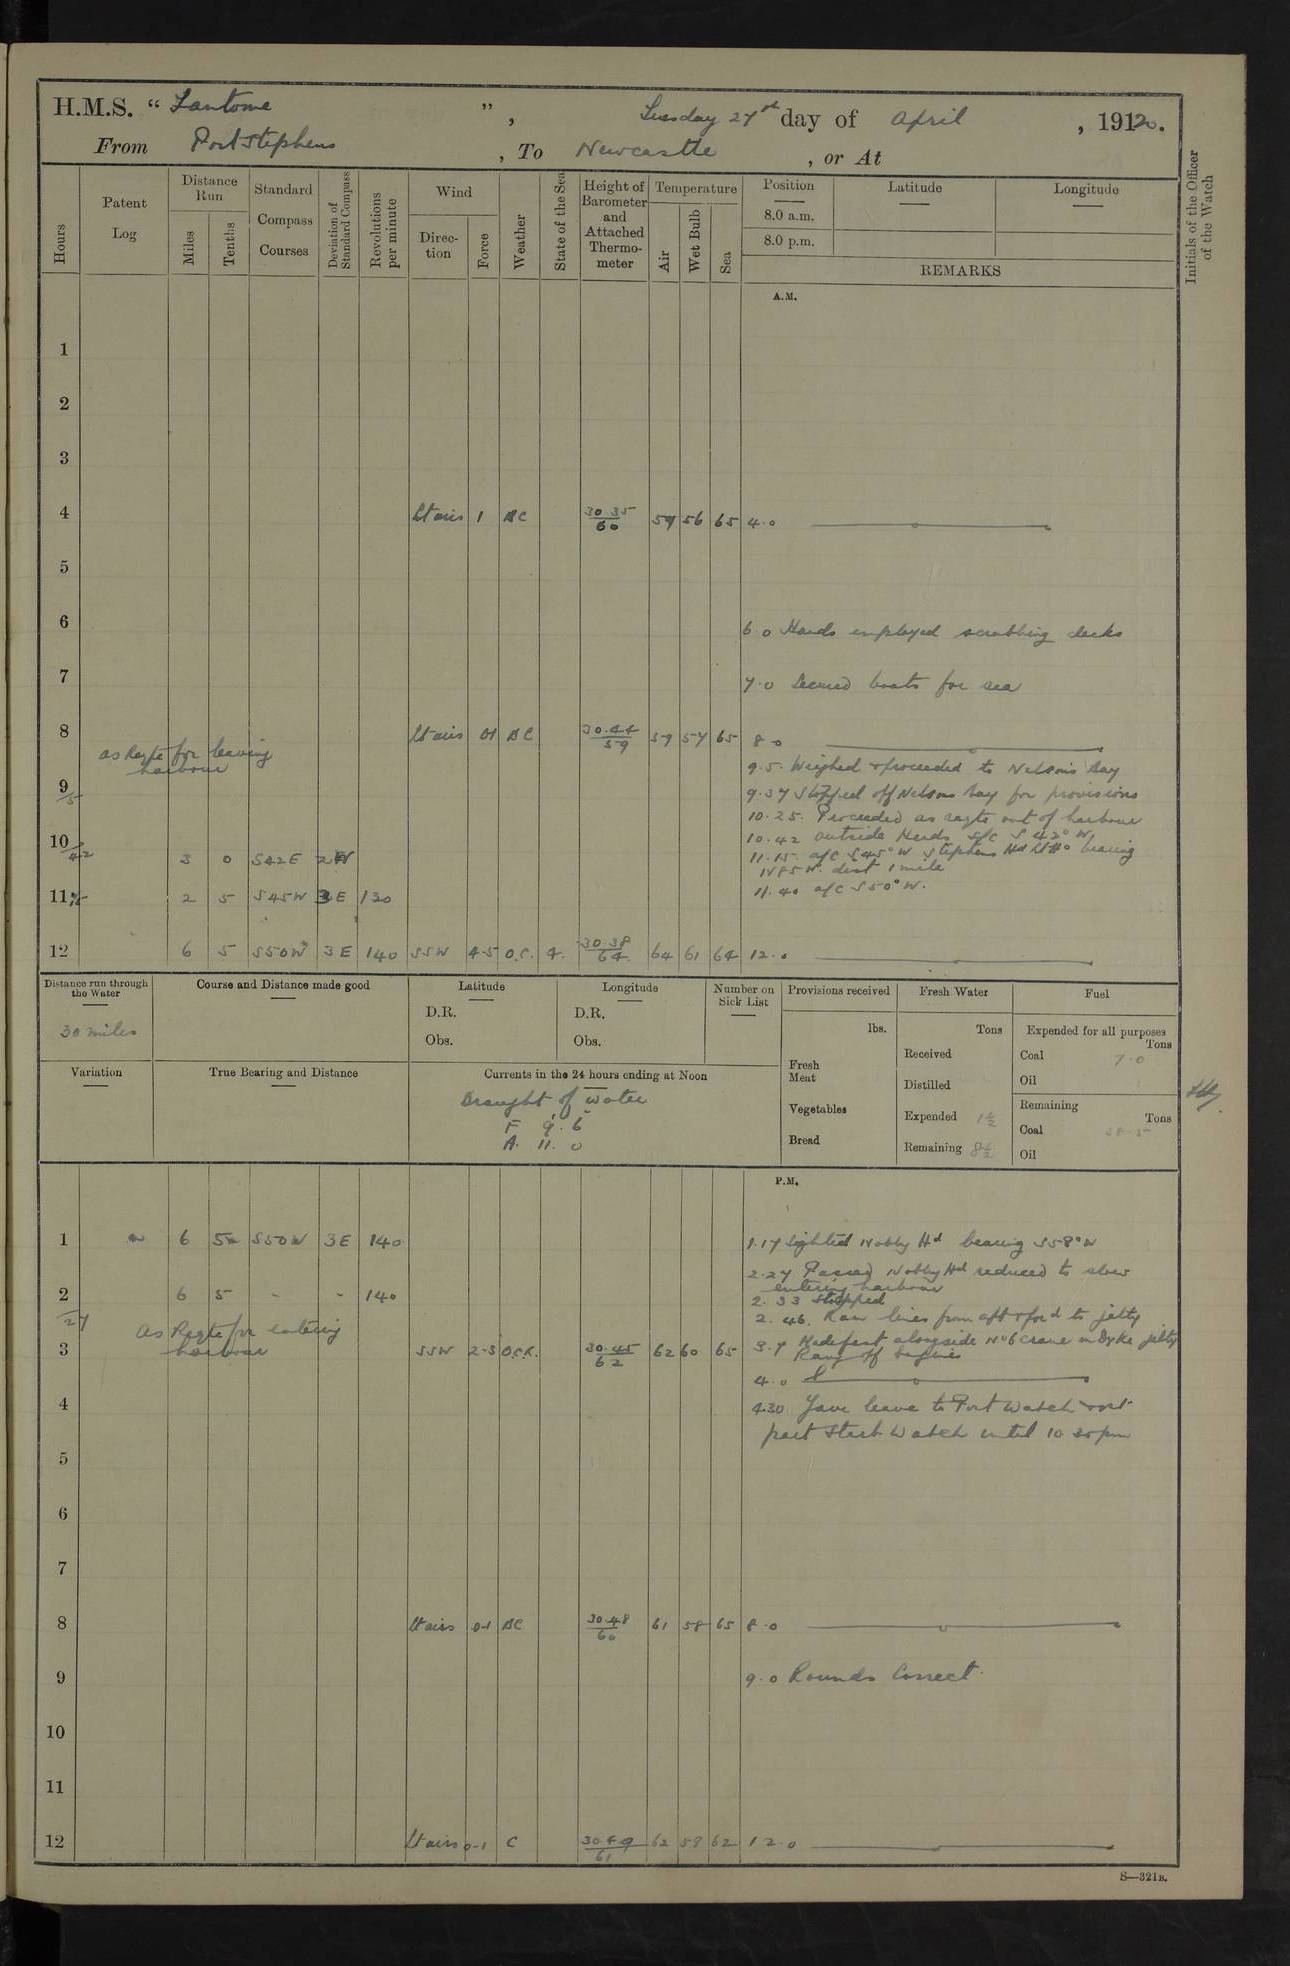 H.M.S. “ Fantome ”, Tuesday 27th day of April, 1920.
From Port Stephens, To Newcastle, or At
Initials of the Officer of the Watch
Hours
Patent Log
Distance Run
Miles
Tenths
Standard Compass Courses
Deviation of Standard Compass
Revolutions per minute
Wind
Direction
Force
Weather
State of the Sea
Height of Barometer and Attached Thermometer
Temperature
Air
Wet Bulb
Sea
Position
8.0 a.m.
8.0 p.m.
Latitude
Longitude
REMARKS
A.M.
1
2
3
4 Lt airs 1 BC 30.35 60 59 56 65 4.0
5
6 6.0 Hands employed scrubbing decks
7 7.0 Secured boats for sea
8 Lt airs 01 BC 30.44 59 59 57 65 8.0
as Reqte for leaving harbour
9.5. Weighed & proceeded to Nelsons Bay
9 /5 9.37 Stopped off Nelsons Bay for provisions
10.25. Proceeded as reqte out of harbour
10 /42 3 0 S42E 2 W 10.42 outside Heads S/c S 42° W.
11.15. a/c S45°W Stephens Hd Lt Ho bearing
N85W. dist 1 mile
11 /15 2 5 S45W 3E 130 11.40 a/c S50°W.
12 6 5 S50W 3E 140 SSW 4-5 O.C. 4. 30.38 64 64 61 64 12.0
Distance run through the Water
30 miles
Course and Distance made good
Latitude
D.R.
Obs.
Longitude
D.R.
Obs.
Number on Sick List
Provisions received
lbs.
Fresh Meat
Vegetables
Bread
Fresh Water
Tons
Received
Distilled
Expended 1½
Remaining 8½
Fuel
Expended for all purposes
Tons
Coal 7.0
Oil
Remaining
Tons
Coal 38.5
Oil
Variation
True Bearing and Distance
Currents in the 24 hours ending at Noon
Draught of water
F 9. 6
A. 11. 0
P.M.
1 6 5 S50W 3E 140 1.17 Sighted Nobby Hd bearing S58°W
2.27 Passed Nobby Hd reduced to slow
entering harbour
2 6 5 - - 140 2.33 Stopped
/27 2.46. Ran lines from aft & ford to jetty
as Reqte for entering harbour
3 SSW 2-3 O.C.R. 30.45 62 62 60 65 3.7 Made fast alongside No 6 crane on Dyke jetty
Rang off Engines
4.0
4 4.30 Gave leave to Port Watch & 1st
part Starb Watch until 10 30pm
5
6
7
8 Lt airs 0-1 BC 30.48 60 61 58 65 8.0
9 9.0 Rounds Correct.
10
11
12 Lt airs 0-1 C 30.49 61 62 59 62 12.0
S—321B.